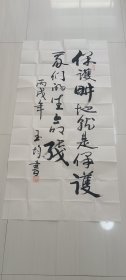 保護耕地就是保護
我们的生命线
丙戌年 玉均書